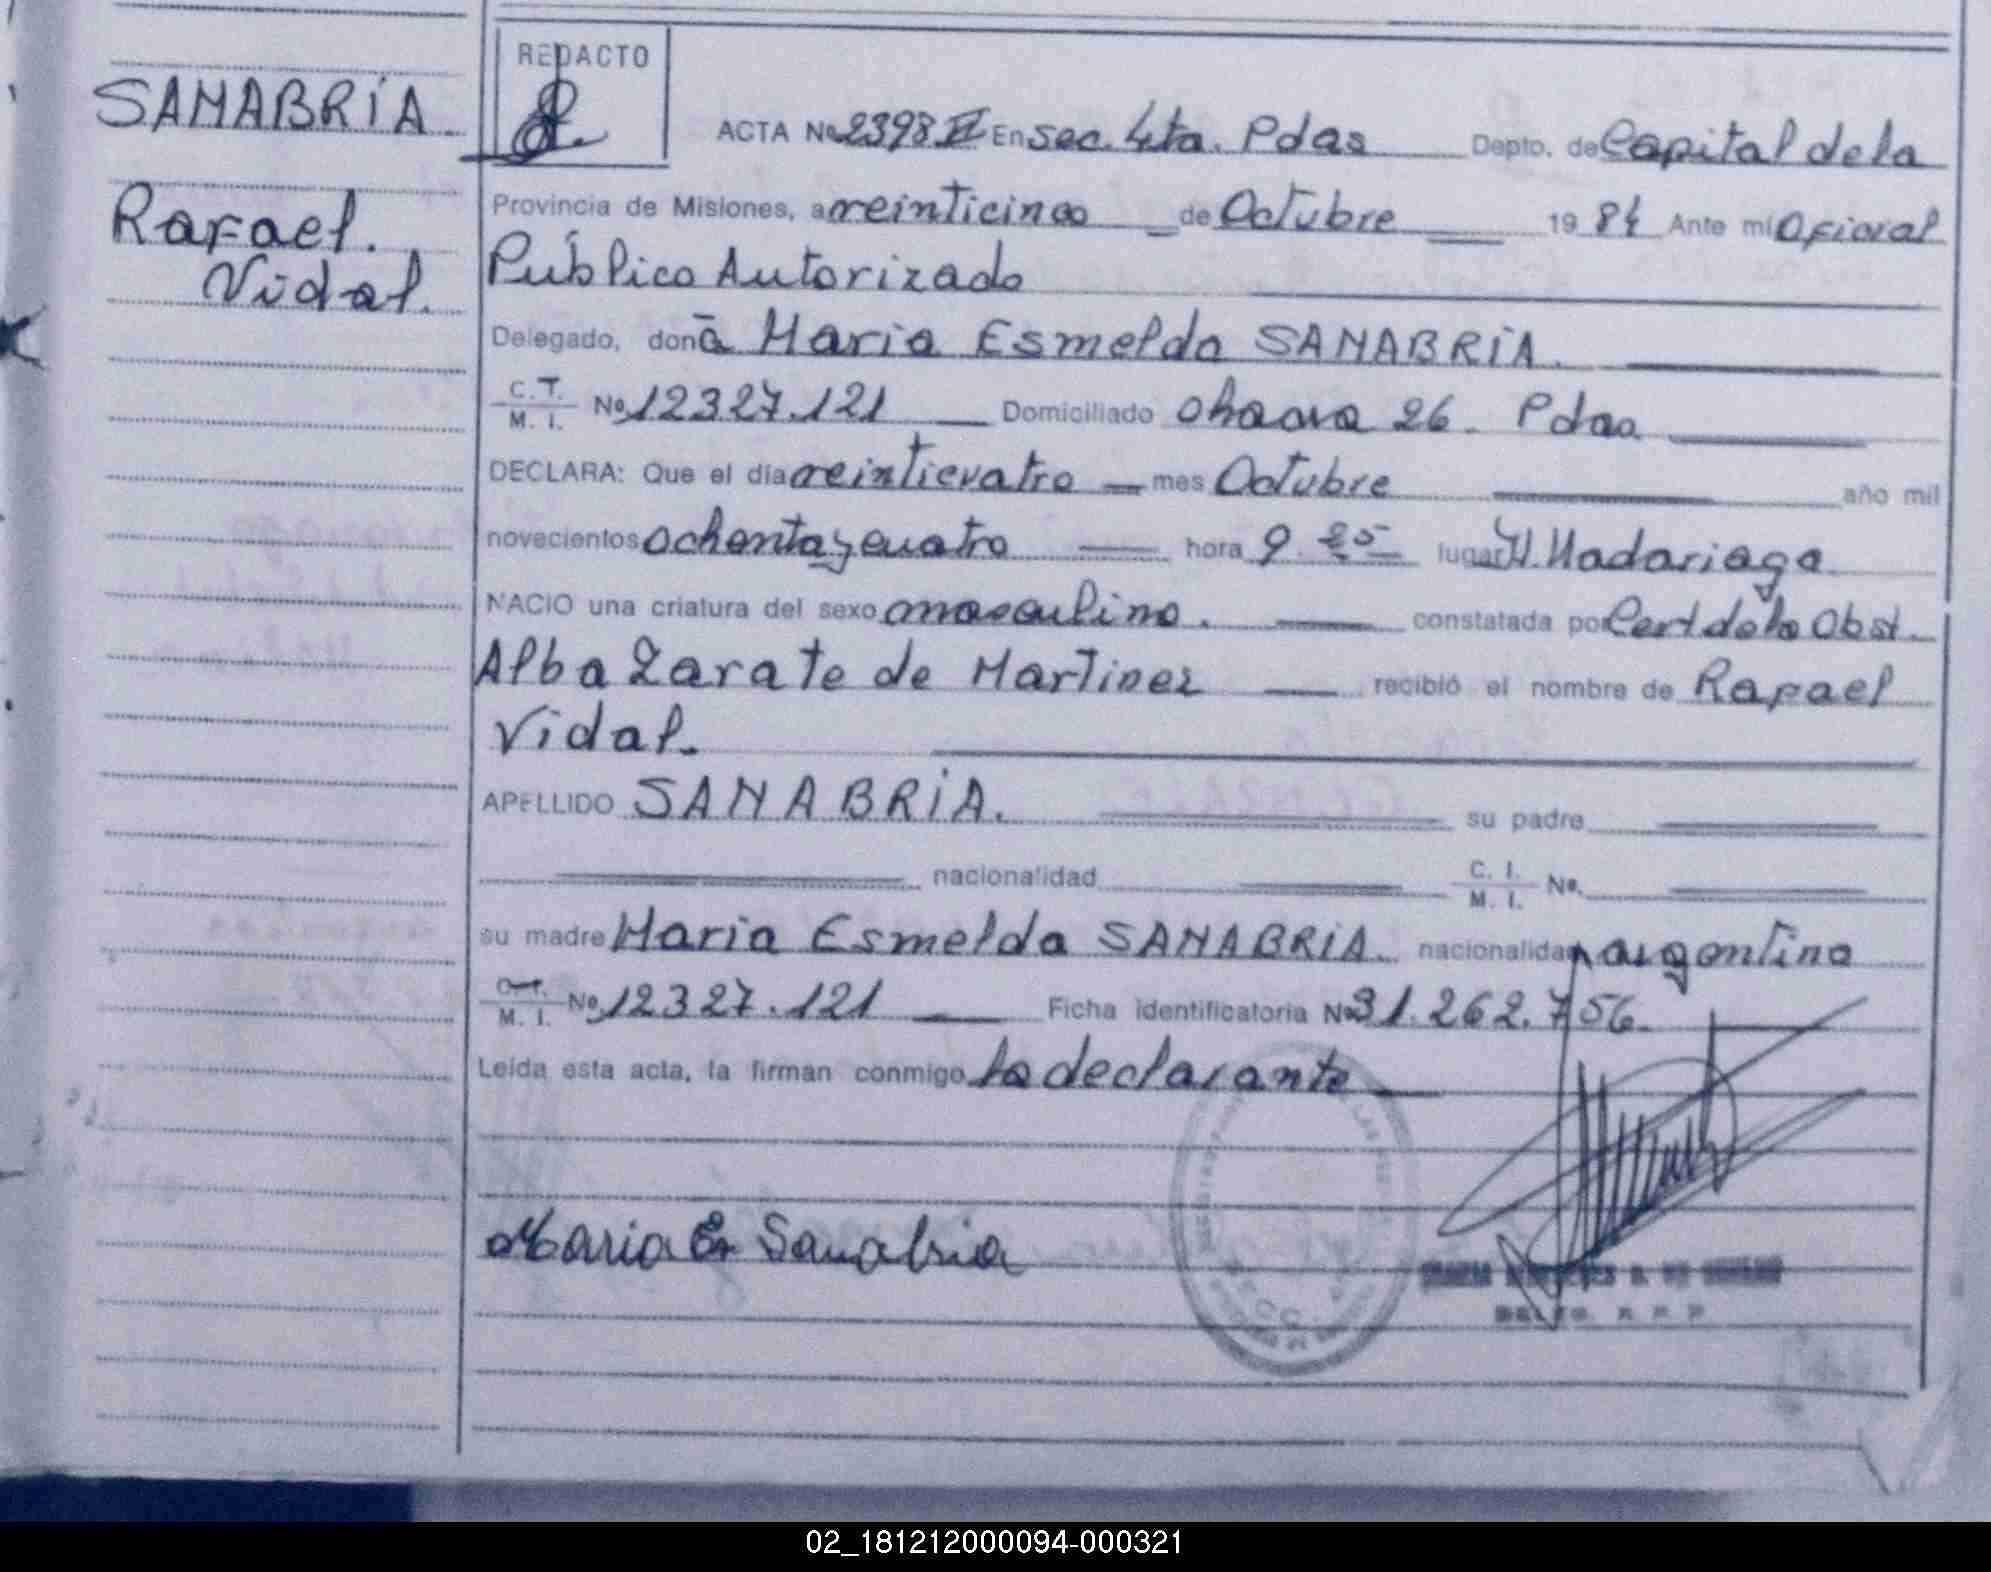 SANABRIA
Rafael
Vidal.
REDACTO
ACTA Nº 2398 II En sec. 4ta. Pdas Depto. de Capital de la
Provincia de Misiones, a veinticinco de Octubre 1984 Ante mi Oficial
Público Autorizado
Delegado, doña Maria Esmelda SANABRIA.
C. T. M. I. Nº 12327.121 Domiciliado chacra 26. Pdas
DECLARA: Que el día veinticuatro mes Octubre año mil
novecientos ochenta y cuatro hora 9. 25 lugar H. Madariaga
NACIO una criatura del sexo masculino. constatada por Cert de la Obst.
Alba Zarate de Martinez recibió el nombre de Rafael
Vidal.
APELLIDO SANABRIA. su padre
nacionalidad C. I. M. I. Nº
su madre Maria Esmelda SANABRIA. nacionalidad argentina
C. I. M. I. Nº 12327.121 Ficha identificatoria Nº 31.262.756.
Leída esta acta, la firman conmigo la declarante
Maria E Sanabria
02_181212000094-000321